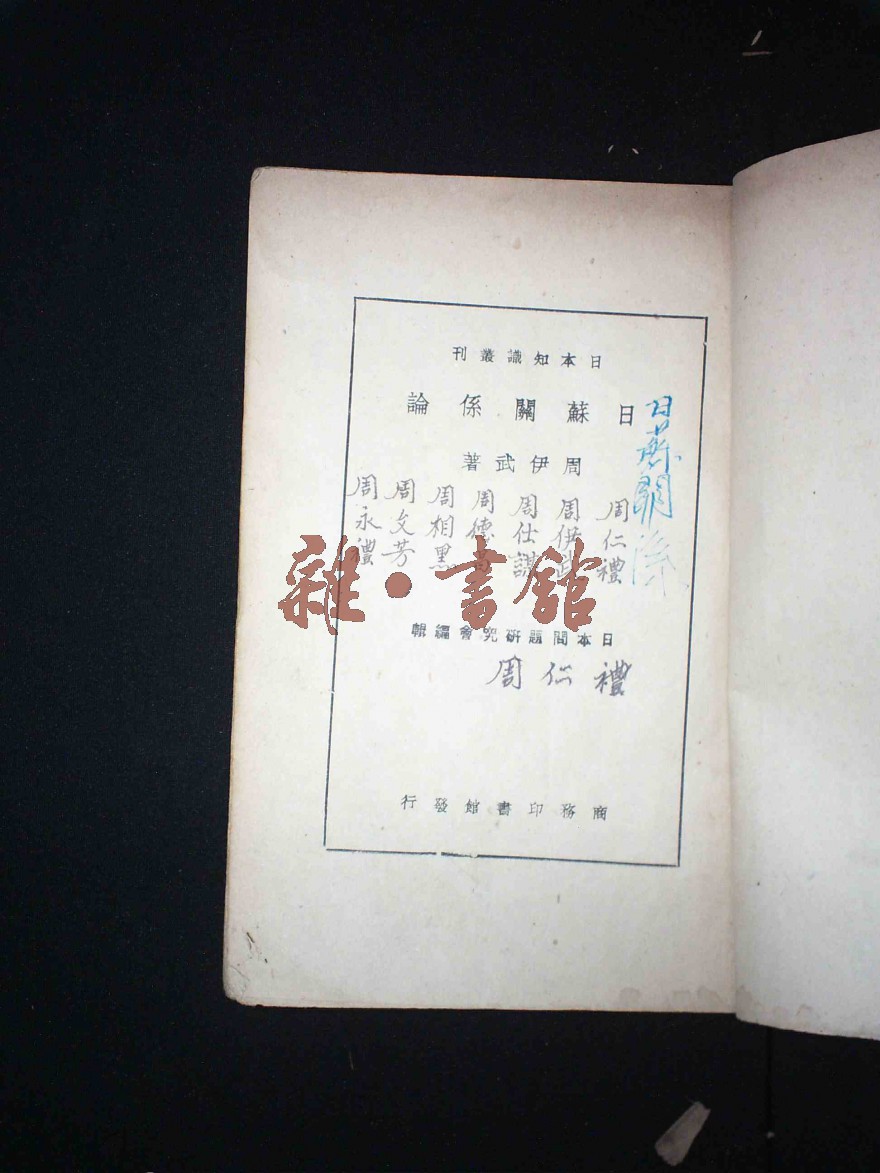 日本知識叢刊
日蘇關係論
周伊武著
日蘇關係
周仁禮
周伊武
周仕謀
周德高
周相黑
周文芳
周永禮
雜·書館
日本問題研究會編輯
周仁禮
商務印書館發行